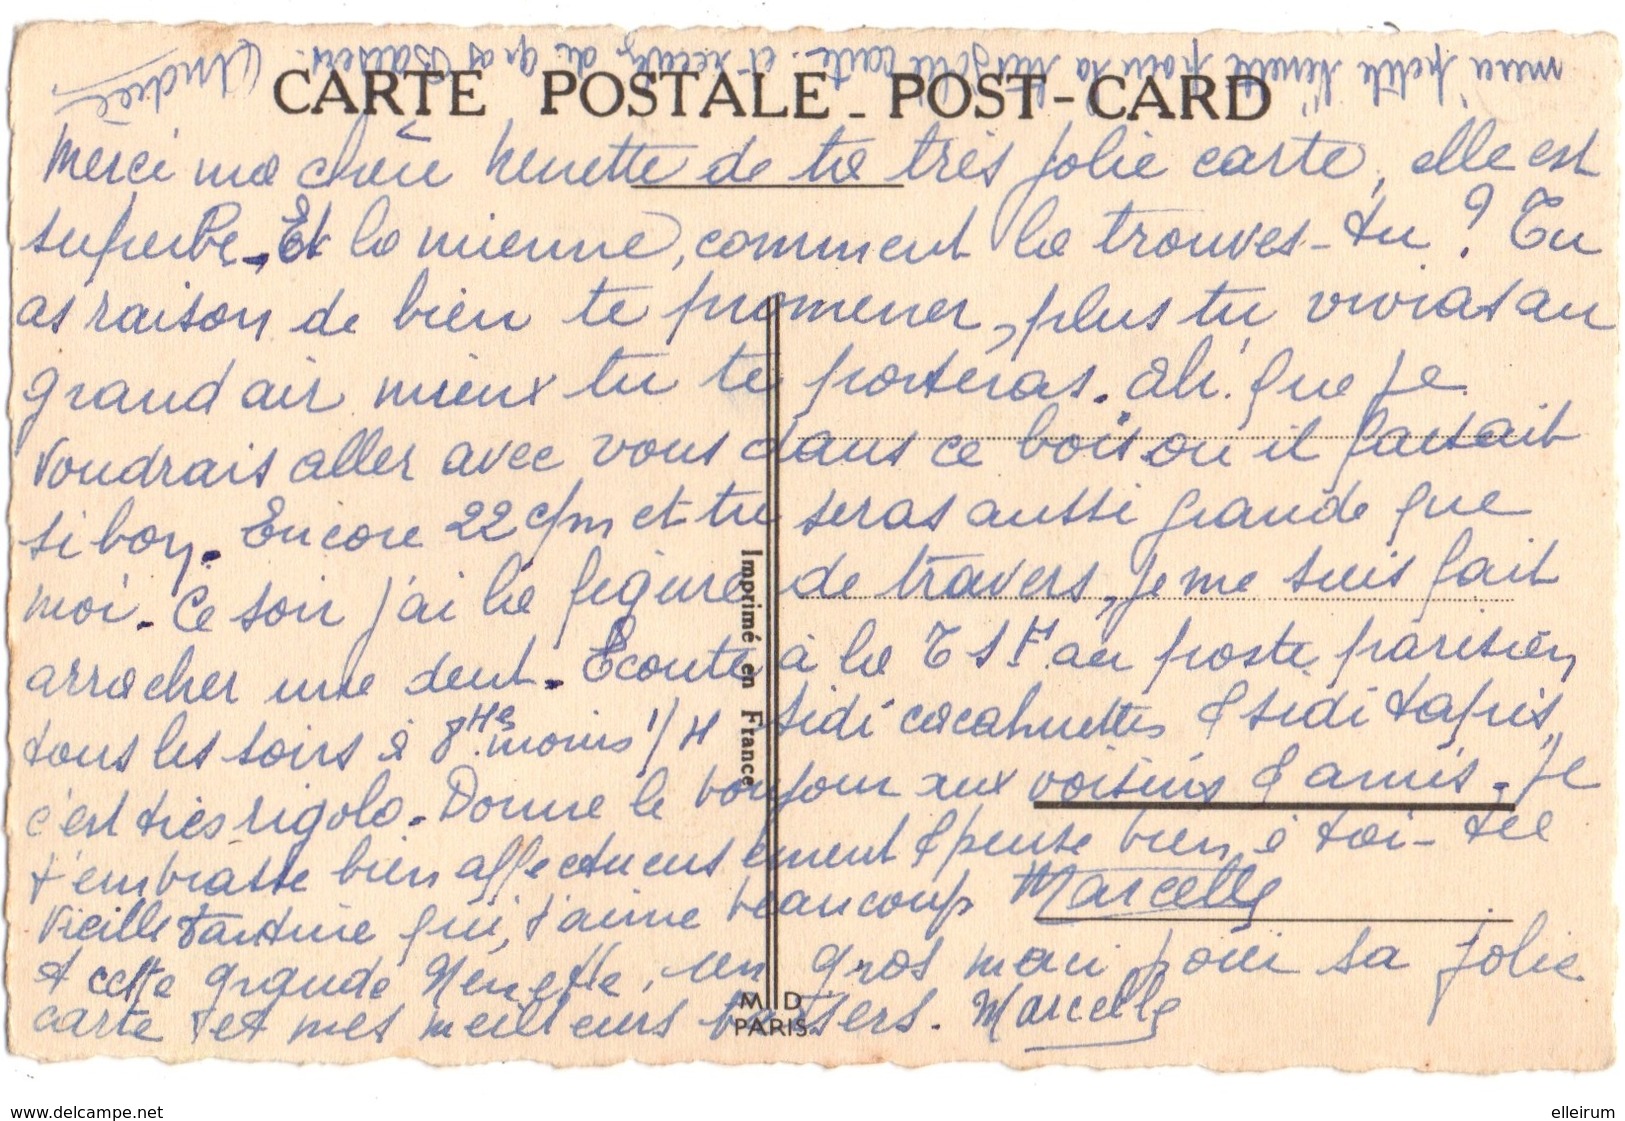 merci petite Nénette pour ta très jolie carte. et recevez de gros Baisers. Andrée
CARTE POSTALE - POST-CARD
Merci ma chère Nenette de ta très jolie carte, elle est
superbe. Et la mienne, comment la trouves-tu ? Tu
as raison de bien te promener, plus tu vivras au
grand air mieux tu te porteras. Ah. que je
voudrais aller avec vous dans ce bois ou il faisait
si bon. Encore 22 c/m et tu seras aussi grande que
moi. Ce soir j'ai la figure de travers, je me suis fait
arracher une dent. Ecoute à la T S F au poste parisien
tous les soirs à 8 H moins 1/4 Sidi cacahuettes & sidi tapis,
c'est très rigolo. Donne le bonjour aux voisins & amis. Je
t'embrasse bien affectueusement & pense bien à toi - ta
vieille tantine qui, t'aime beaucoup Marcelle
A cette grande Nénette, un gros merci pour sa jolie
carte et mes meilleurs baisers. Marcelle
Imprimé en France
M D
PARIS
www.delcampe.net
elleirum